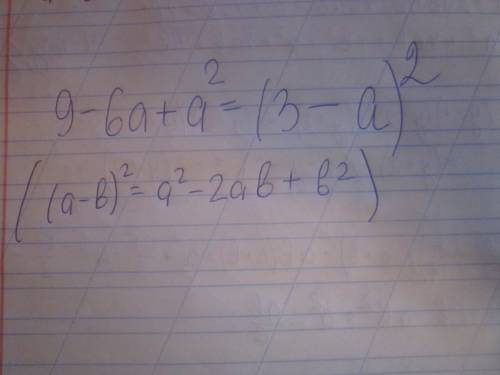 9-6a+a²=(3-a)²
((a-в)²=a²-2aв+в²)